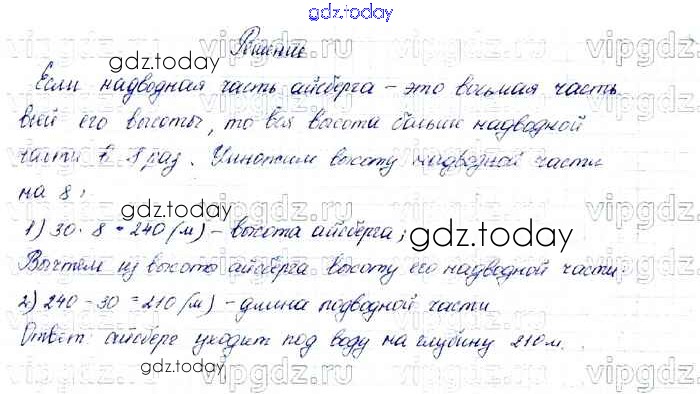 gdz.today
Решение
Если надводная часть айсберга – это восьмая часть
всей его высоты, то вся высота больше надводной
части в 8 раз. Умножим высоту надводной части
на 8:
1) 30 · 8 = 240 (м) – высота айсберга;
Вычтем из высоты айсберга высоту его надводной части:
2) 240 – 30 = 210 (м) – длина подводной части
Ответ: айсберг уходит под воду на глубину 210 м.
vipgdz.com
gdz.today
gdz.today
gdz.today
gdz.today